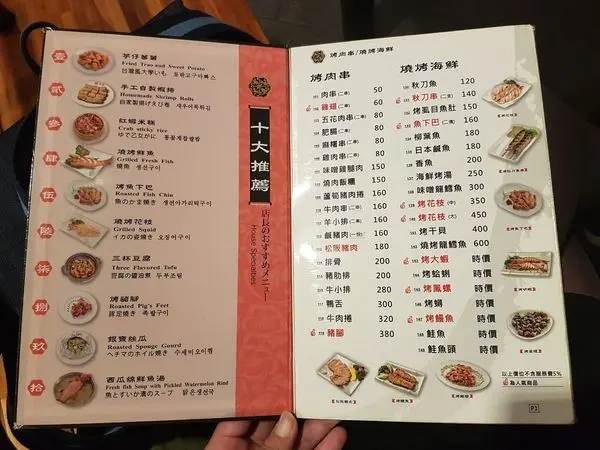 壹
芋仔蕃薯
Fried Trao and Sweet Potato
貳
手工自製蝦捲
Homemade Shrimp Rolls
自家製揚げえび巻
叁
紅蟳米糕
Crab sticky rice
肆
燒烤鮮魚
Grilled Fresh Fish
焼魚 생선구이
伍
烤魚下巴
Roasted Fish Chin
魚のかま焼き 생선아가리턱구이
陸
燒烤花枝
Grilled Squid
イカの姿焼き 오징어구이
柒
三杯豆腐
Three Flavored Tofu
豆腐の醤油煮 두부조림
捌
烤豬腳
Roasted Pig's Feet
豚足焼き 족발구이
玖
銀寶絲瓜
Roasted Sponge Gourd
ヘチマのホイル焼き 수세미오이찜
拾
西瓜綿鮮魚湯
Fresh fish Soup with Pickled Watermelon Rind
魚とすいか漬のスープ 맑은생선국
十大推薦
店長のおすすめメニュー
House Specialties
烤肉串/燒烤海鮮
烤肉串
肉串(二串) 50
雞翅(二串) 60
五花肉串(二串)
肥腸(二串)
雞肉串(二串) 150
味噌雞腿肉 150
燒肉飯糰 150
蘆筍豬肉捲 160
牛肉串(二串) 160
羊小排(二串) 160
鹹豬肉(一份) 160
松阪豬肉 180
排骨 200
豬肋排 200
牛小排 280
鴨舌 300
牛肉捲 320
豬腳 380
燒烤海鮮
秋刀魚 120
秋刀串(二支) 140
烤虱目魚肚 150
魚下巴(二塊) 160
柳葉魚 180
日本鹹魚 180
香魚 180
海鮮烤湯 250
味噌龍鱈魚 250
烤花枝(中) 350
烤花枝(大) 450
烤干貝 400
燒烤龍鱈魚 600
烤大蝦 時價
烤蛤蜊 時價
烤鳳螺 時價
烤蟳 時價
烤鰻魚 時價
鮭魚 時價
鮭魚頭 時價
以上價也不含服務費5%
為人氣商品
P3